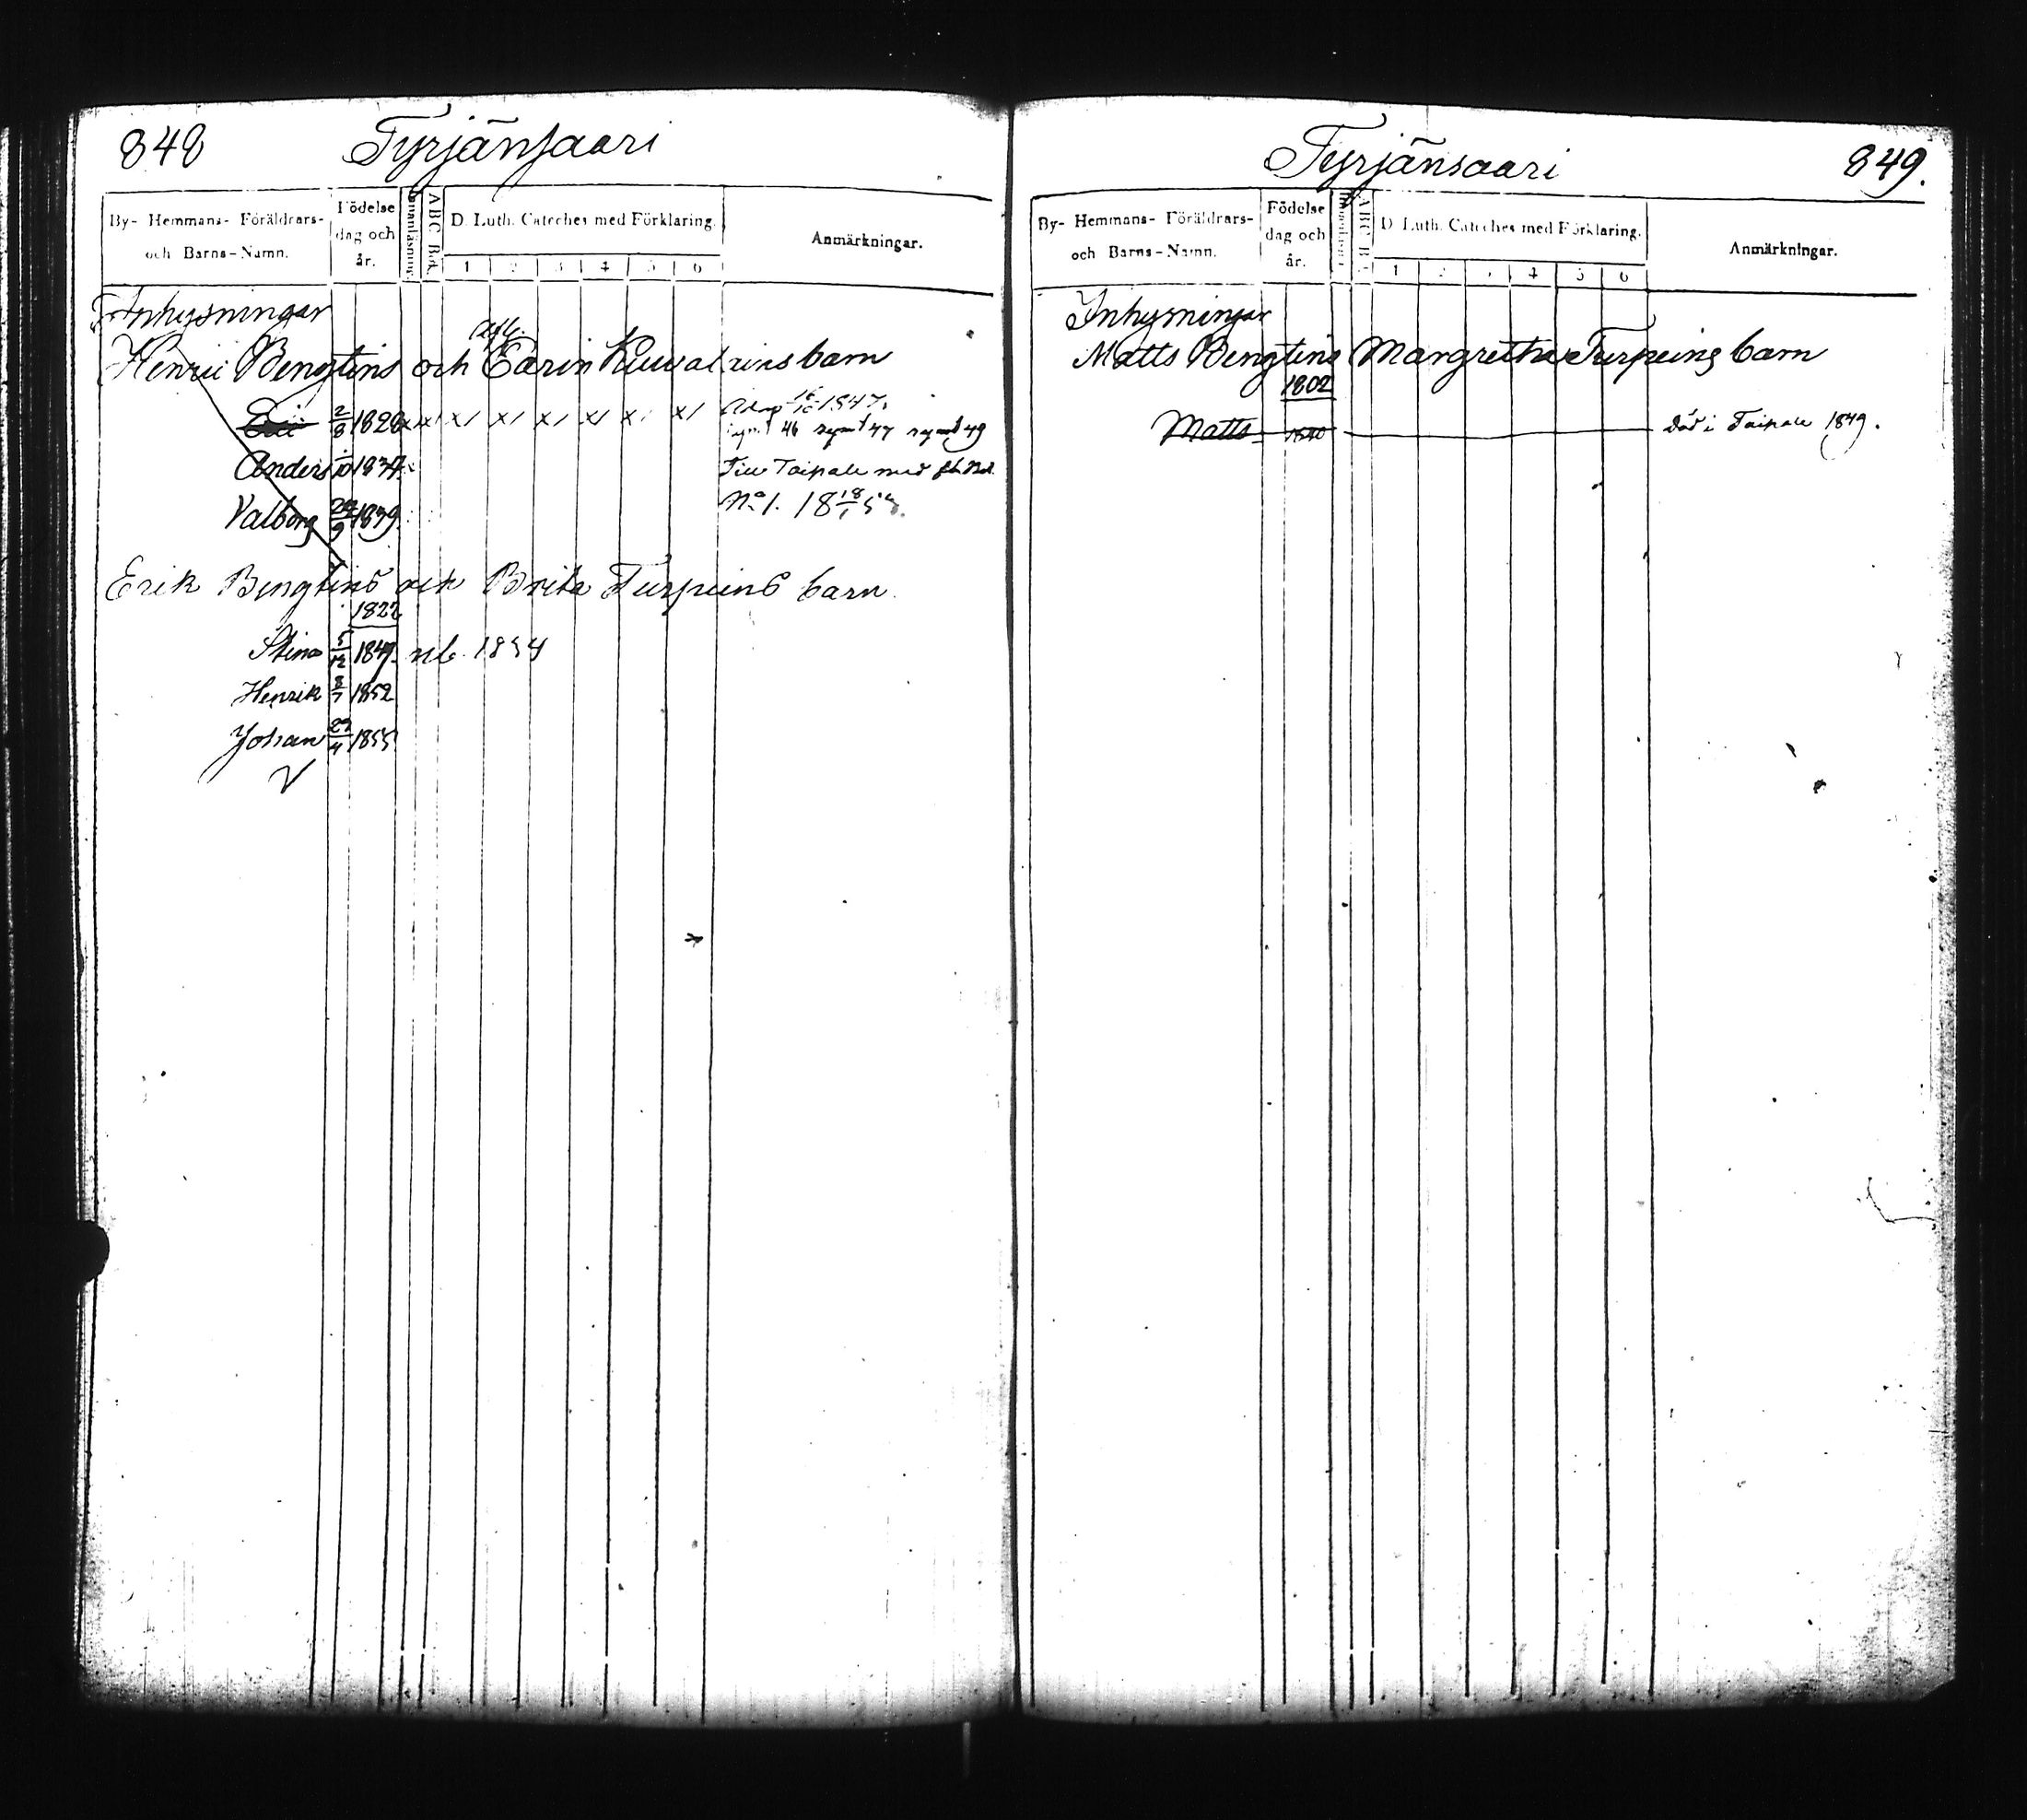 848 Tyrjänsaari
By- Hemmans- Föräldrars- och Barns-Namn.
Födelse dag och år.
Innanläsning.
ABC Bok.
D. Luth. Cateches med Förklaring.
1 2 3 4 5 6
Anmärkningar.
Inhysningar
Henric Bengtins och afl. Carin Kuvalains barn
Eric 2/8 1828 x x x x x x x x 1847.
46 47 49
Anders 1837. Till Taipale med fl. Bd.
Valborg 9 1839. No 1.
Erik Bengtins och Brita Turpeins barn
1822
Stina 5/12 1849 nb. 1854
Henrik 8/7 1852
Johan 29/4 1855
Tyrjänsaari 849.
By- Hemmans- Föräldrars- och Barns-Namn.
Födelse dag och år.
Innanläsning.
ABC B
D. Luth. Cateches med Förklaring.
1 2 3 4 5 6
Anmärkningar.
Inhysningar
Matts Bengtins Margretha Turpeins barn
1802
Matts 1840 död i Taipale 1849.